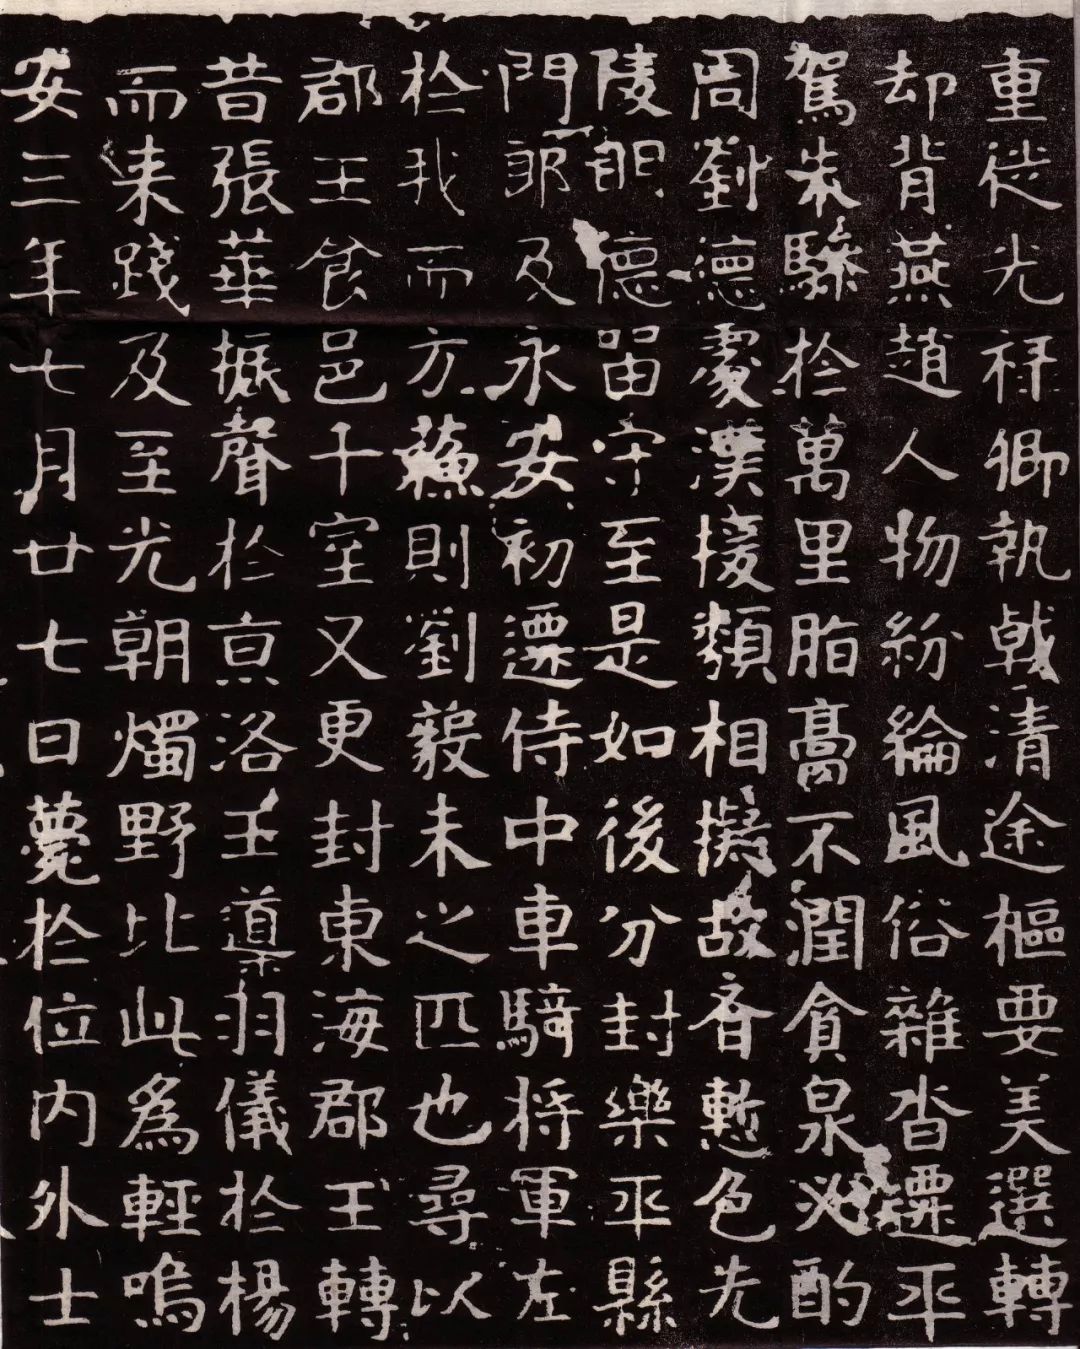 重従光祿卿執戟清途樞要美選轉
却背燕趙人物紛綸風俗雜沓遷平
駕朱驂於萬里脂膏不潤貪泉必酌
周劉德處漢援類相擬故吝慙色先
陵朗德留守至是如後分封樂平縣
門郎及永安初遷侍中車騎將軍左
於我而方蘇則劉毅未之匹也尋以
郡王食邑十室又更封東海郡王轉
昔張華振聲於京洛王導羽儀於楊
而來踐及至光朝燭野比此為輕嗚
安三年七月廿七日薨於位內外士